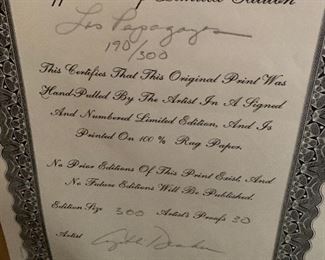 Limited Edition
Los Papagayos
190/300
This Certifies That This Original Print Was
Hand-Pulled By The Artist In A Signed
And Numbered Limited Edition, And Is
Printed On 100% Rag Paper.
No Prior Editions Of This Print Exist, And
No Future Editions Will Be Published.
Edition Size 300 Artist's Proofs 30
Artist